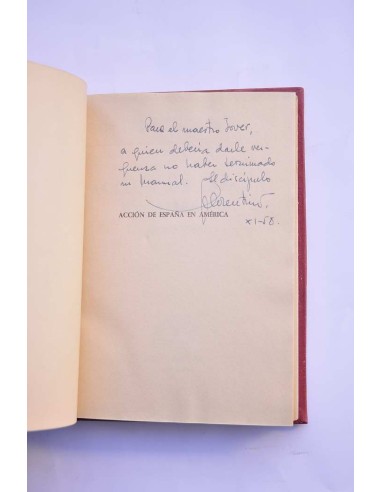 Para el maestro Jover,
a quien debería darle ver-
guenza no haber terminado
su Manual. El discípulo
Florentino.
XI-58.
ACCIÓN DE ESPAÑA EN AMÉRICA